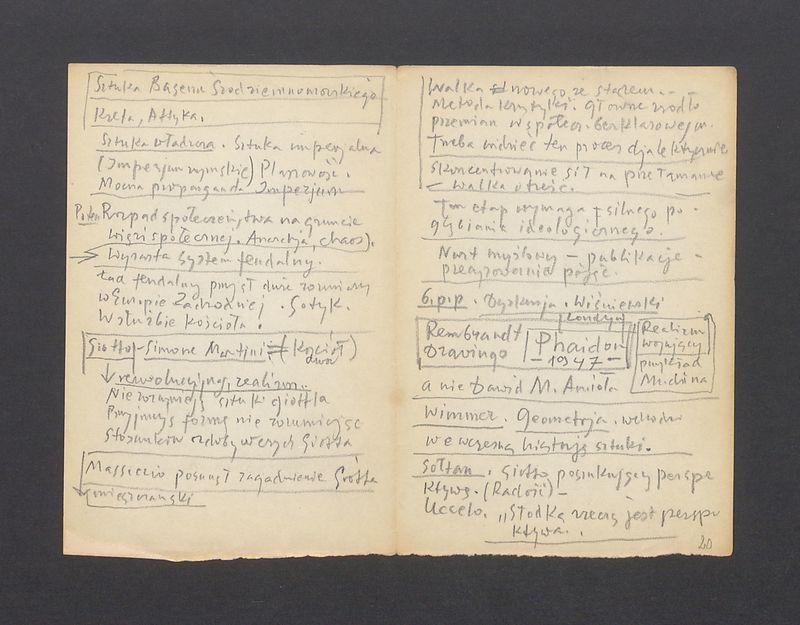 Sztuka Basenu Śródziemnomorskiego
Kreta, Attyka.
Sztuka władzca. Sztuka imperialna
(Imperium rzymskie) Planowość.
Mocna propaganda Imperium
Potem Rozpad społeczeństwa na gruncie
więzi społecznej. Anarchja, chaos).
→ Wyrasta system feudalny.
Ład feudalny
w Europie Zachodniej. Gotyk.
W służbie Kościoła.
Giotto - Simone Martini ≠ Kościół)
dwór
↓ rewolucyjny, realizm.
Nie rozumieją sztuki Giotta
Przyjmują formę nie rozumiejąc
stosunków zdobywczych Giotta
Massaccio posunął zagadnienie Giotta
Walka nowego ze starem. - -
Metoda krytyki. Główne źródło
przemian w społecz. bezklasowem.
Trzeba widzieć ten proces djalektycznie
skoncentrowanie sił na przełamanie
- walka o treść.
Ten etap wymaga silnego po-
głębiania ideologicznego.
Nurt myślowy - publikacje -
precyzowanie pojęć.
6. p.p. Dyskusja. Wiśniewski
Londyn
Rembrandt
Drawings
Phaidon
- 1947 -
Realizm
wojujący
przykład
Michina
a nie Dawid M. Anioła
Wimmer. Geometrja. wchodzi
we wczesną historję sztuki.
Sołtan. Giotto poszukujący perspe
ktywy. (Radość) -
Uccelo. "Słodką rzeczą jest perspe
ktywa.
20